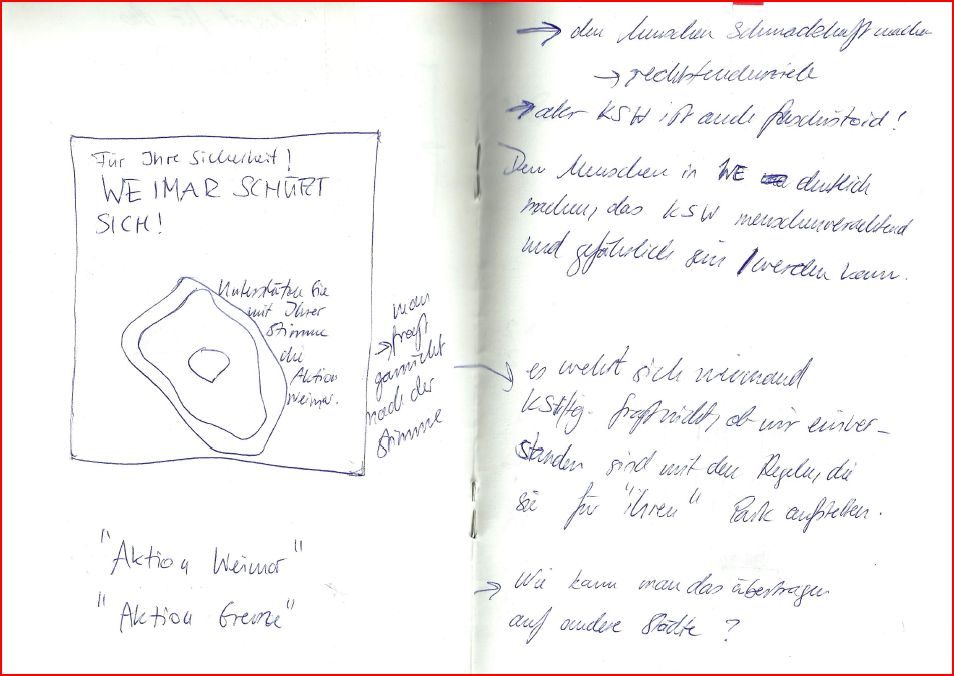 Für Ihre Sicherheit!
WEIMAR SCHÜTZT
SICH!
Unterstützen Sie
mit Ihrer
Stimme
die
Aktion
Weimar.
man
→ fragt
garnicht
nach der
Stimme
"Aktion Weimar"
"Aktion Grenze"
→ den Menschen schmackhaft machen
→
→ aber KSW ist auch faschistoid!
Den Menschen in WE deutlich
machen, das KSW menschenverachtend
und gefährlich sein / werden kann.
es wehrt sich niemand
KStiftg. fragt nicht, ob wir einver-
standen sind mit den Regeln, die
sie für "ihren" Park aufstellen.
→ Wie kann man das übertragen
auf andere Städte?